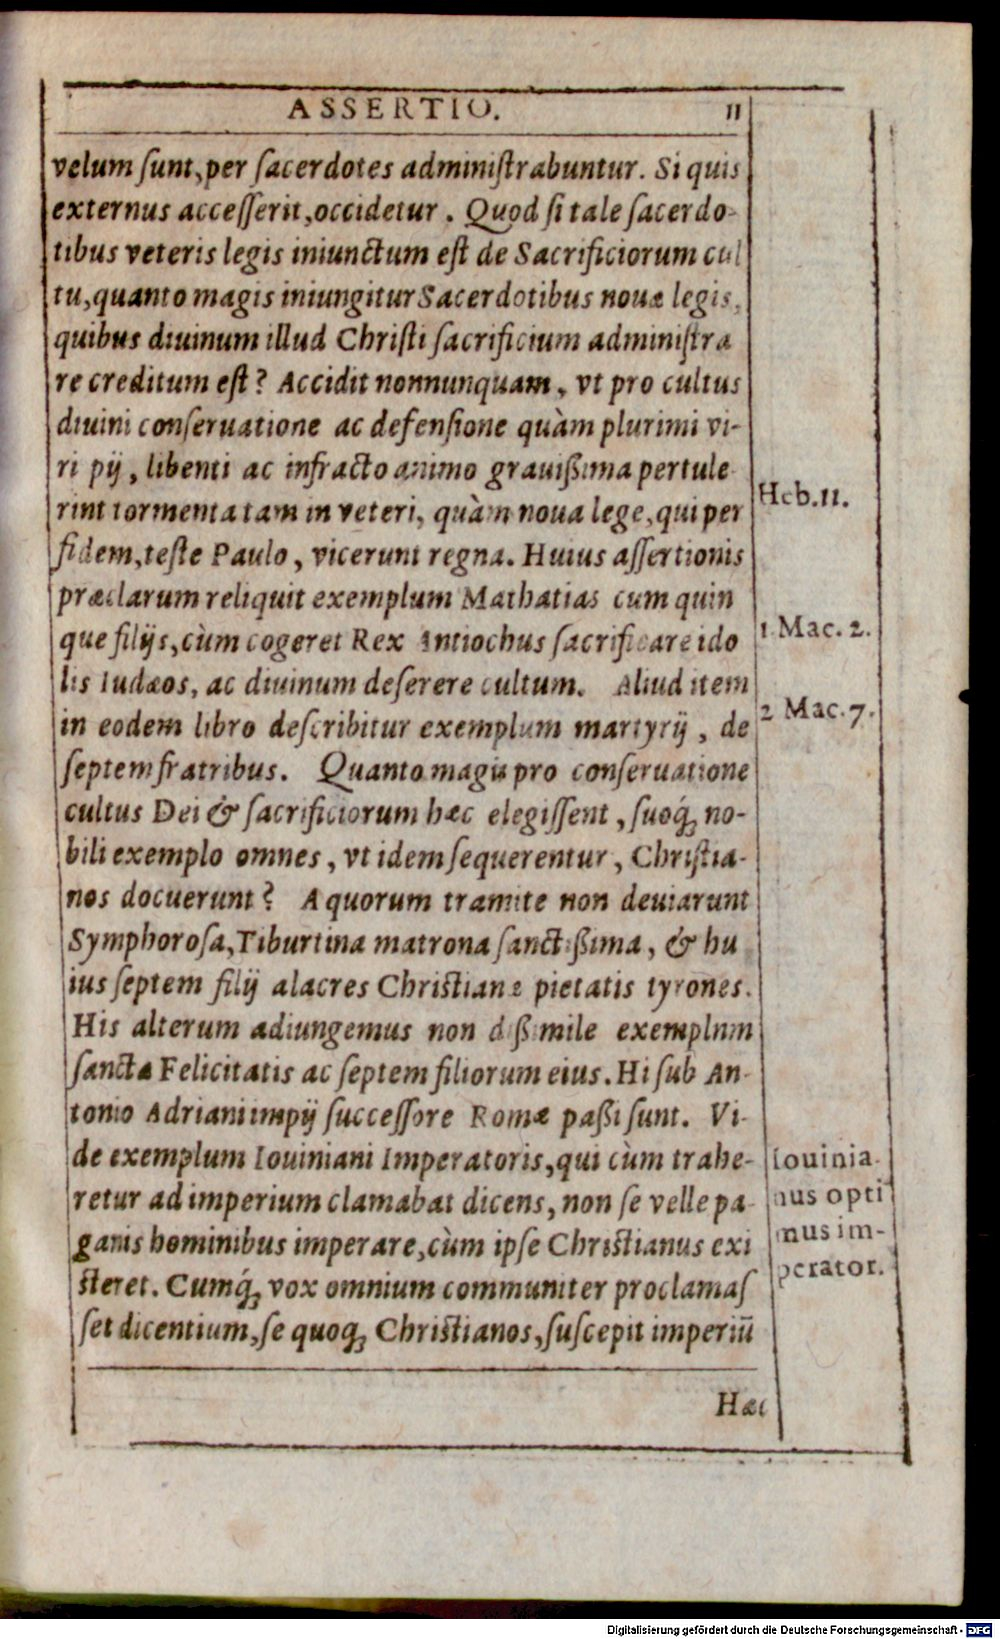 ASSERTIO. 11
velum ſunt, per ſacerdotes adminiſtrabuntur. Si quis
externus acceſſerit, occidetur. Quod ſi tale ſacerdo-
tibus veteris legis iniunctum eſt de Sacrificiorum cul
tu, quanto magis iniungitur Sacerdotibus nouæ legis,
quibus diuinum illud Chriſti ſacrificium adminiſtra
re creditum eſt? Accidit nonnunquam, vt pro cultus
diuini conſeruatione ac defenſione quàm plurimi vi-
ri pij, libenti ac infracto animo grauißima pertule-
rint tormenta tam in veteri, quàm noua lege, qui per
fidem, teſte Paulo, vicerunt regna. Huius aſſertionis
Heb. 11.
præclarum reliquit exemplum Mathatias cum quin
que filijs, cùm cogeret Rex Antiochus ſacrificare ido
1 Mac. 2.
lis Iudæos, ac diuinum deſerere cultum. Aliud item
in eodem libro deſcribitur exemplum martyrij, de
2 Mac. 7.
ſeptem fratribus. Quanto magis pro conſeruatione
cultus Dei & ſacrificiorum hæc elegiſſent, ſuoq́; no-
bili exemplo omnes, vt idem ſequerentur, Chriſtia-
nos docuerunt? A quorum tramite non deuiarunt
Symphoroſa, Tiburtina matrona ſanctißima, & hu
ius ſeptem filij alacres Chriſtianæ pietatis tyrones.
His alterum adiungemus non dißimile exemplnm
ſanctæ Felicitatis ac ſeptem filiorum eius. Hi ſub An-
tonio Adriani impij ſucceſſore Romæ paßi ſunt. Vi-
de exemplum Iouiniani Imperatoris, qui cùm trahe-
retur ad imperium clamabat dicens, non ſe velle pa-
ganis hominibus imperare, cùm ipſe Chriſtianus exi
ſteret. Cumq́; vox omnium communiter proclamaſ
ſet dicentium, ſe quoq; Chriſtianos, ſuſcepit imperiū
Iouinia-
nus opti
mus im-
perator.
Hæc
Digitalisierung gefördert durch die Deutsche Forschungsgemeinschaft - DFG